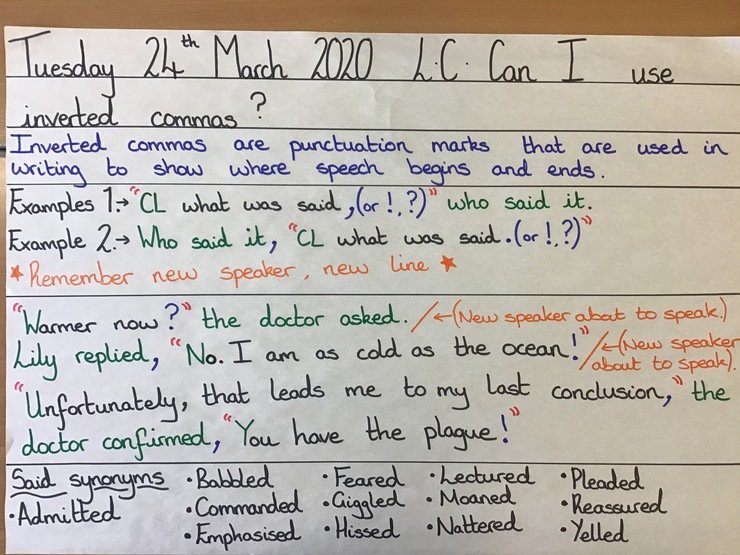 Tuesday 24th March 2020 L.C. Can I use
inverted commas?
Inverted commas are punctuation marks that are used in
writing to show where speech begins and ends.
Examples 1.→ "CL what was said ,(or !, ?)" who said it.
Example 2.→ Who said it, "CL what was said .(or !, ?)"
* Remember new speaker, new line *
"Warmer now?" the doctor asked. / ←(New speaker about to speak.)
Lily replied, "No. I am as cold as the ocean!" / ←(New speaker
about to speak).
"Unfortunately, that leads me to my last conclusion," the
doctor confirmed, "You have the plague!"
Said synonyms •Babbled •Feared •Lectured •Pleaded
•Admitted •Commanded •Giggled •Moaned •Reassured
•Emphasised •Hissed •Nattered •Yelled